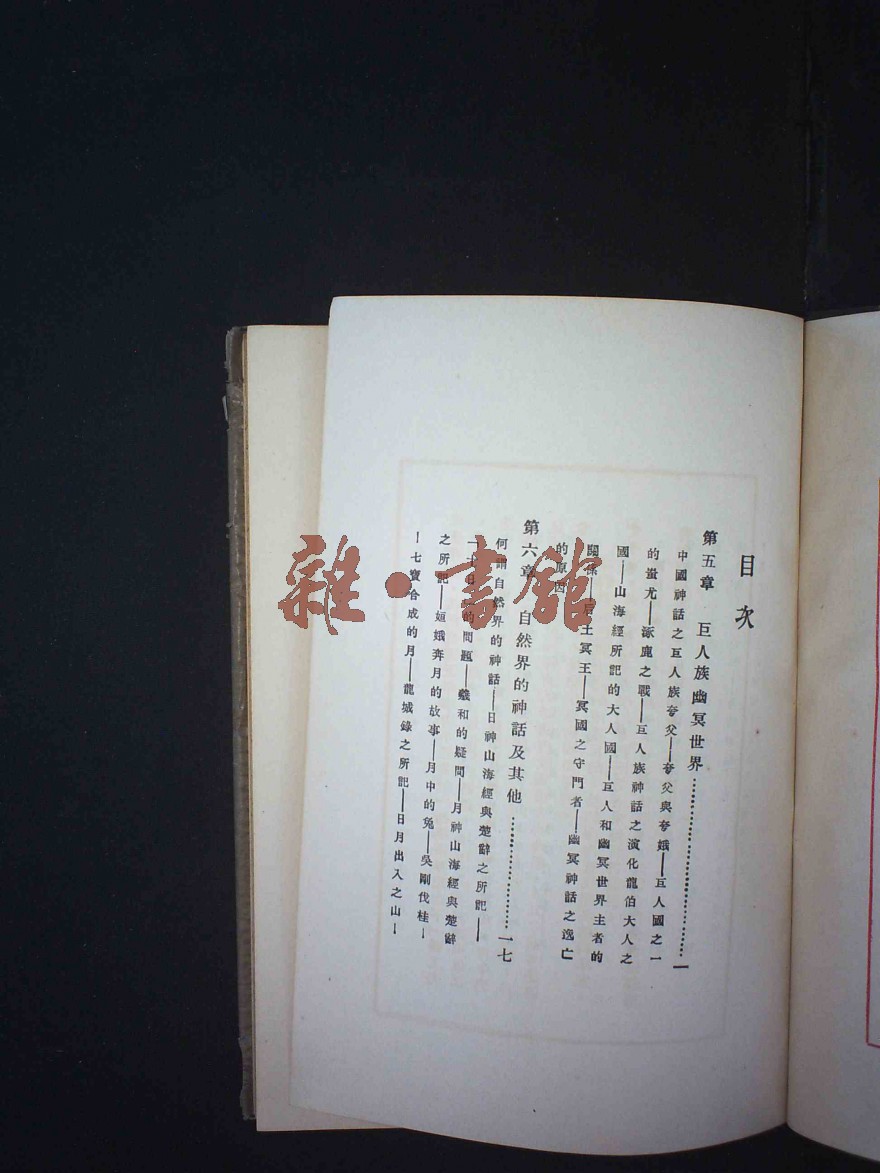 目次
第五章 巨人族幽冥世界………………………一
中國神話之巨人族夸父——夸父與夸娥——巨人國之一
的蚩尤——涿鹿之戰——巨人族神話之演化龍伯大人之
國——山海經所記的大人國——巨人和幽冥世界主者的
關係——后土冥王——冥國之守門者——幽冥神話之逸亡
的原因
第六章 自然界的神話及其他………………一七
何謂自然界的神話——日神山海經與楚辭之所記——
「十日」的問題——羲和的疑問——月神山海經與楚辭
之所記——姮娥奔月的故事——月中的兔——吳剛伐桂—
—七寶合成的月——龍城錄之所記——日月出入之山—
雜·書館